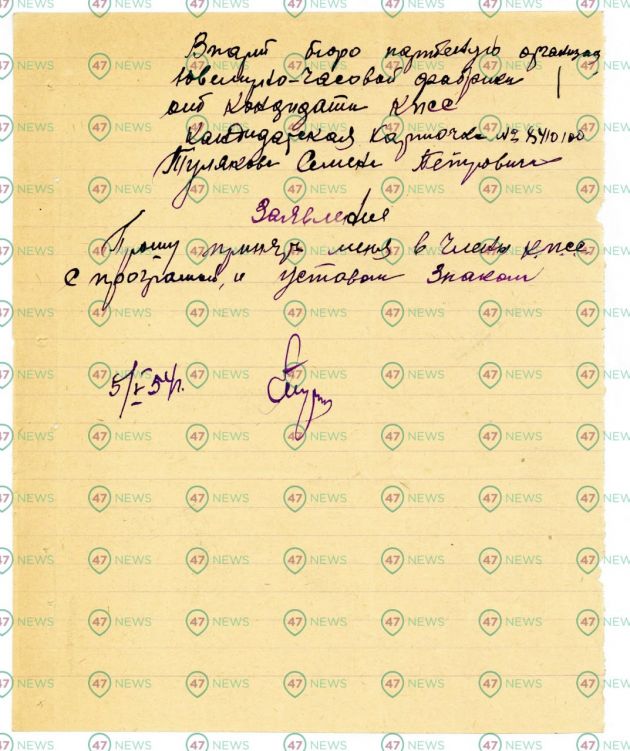 В парт бюро партийную организац
Ювелирно-часовой фабрики
от кандидата КПСС
кандидатская карточка №
Тулякова Семена Петровича
Заявления
Прошу принять меня в Члены КПСС
С програмой, и уставом Знаком
5/V 54г.
47 NEWS